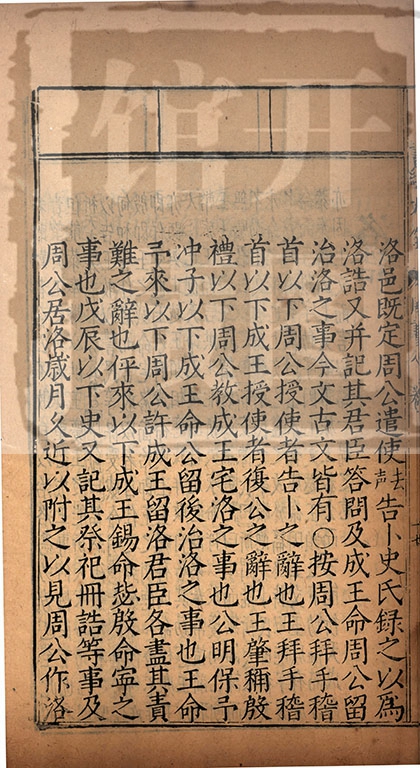 洛邑既定周公遣使去声告卜史氏録之以爲
洛誥又并記其君臣答問及成王命周公留
治洛之事今文古文皆有○按周公拜手稽
首以下周公授使者告卜之辭也王拜手稽
首以下成王授使者復公之辭也王肇稱殷
禮以下周公教成王宅洛之事也公明保予
冲子以下成王命公留後治洛之事也王命
予來以下周公許成王留洛君臣各盡其責
難之辭也伻來以下成王錫命毖殷命寧之
事也戊辰以下史又記其祭祀冊誥等事及
周公居洛歲月久近以附之以見周公作洛
开
馆